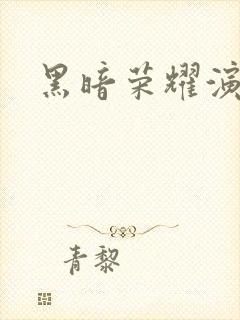 黑暗荣耀演
青黎